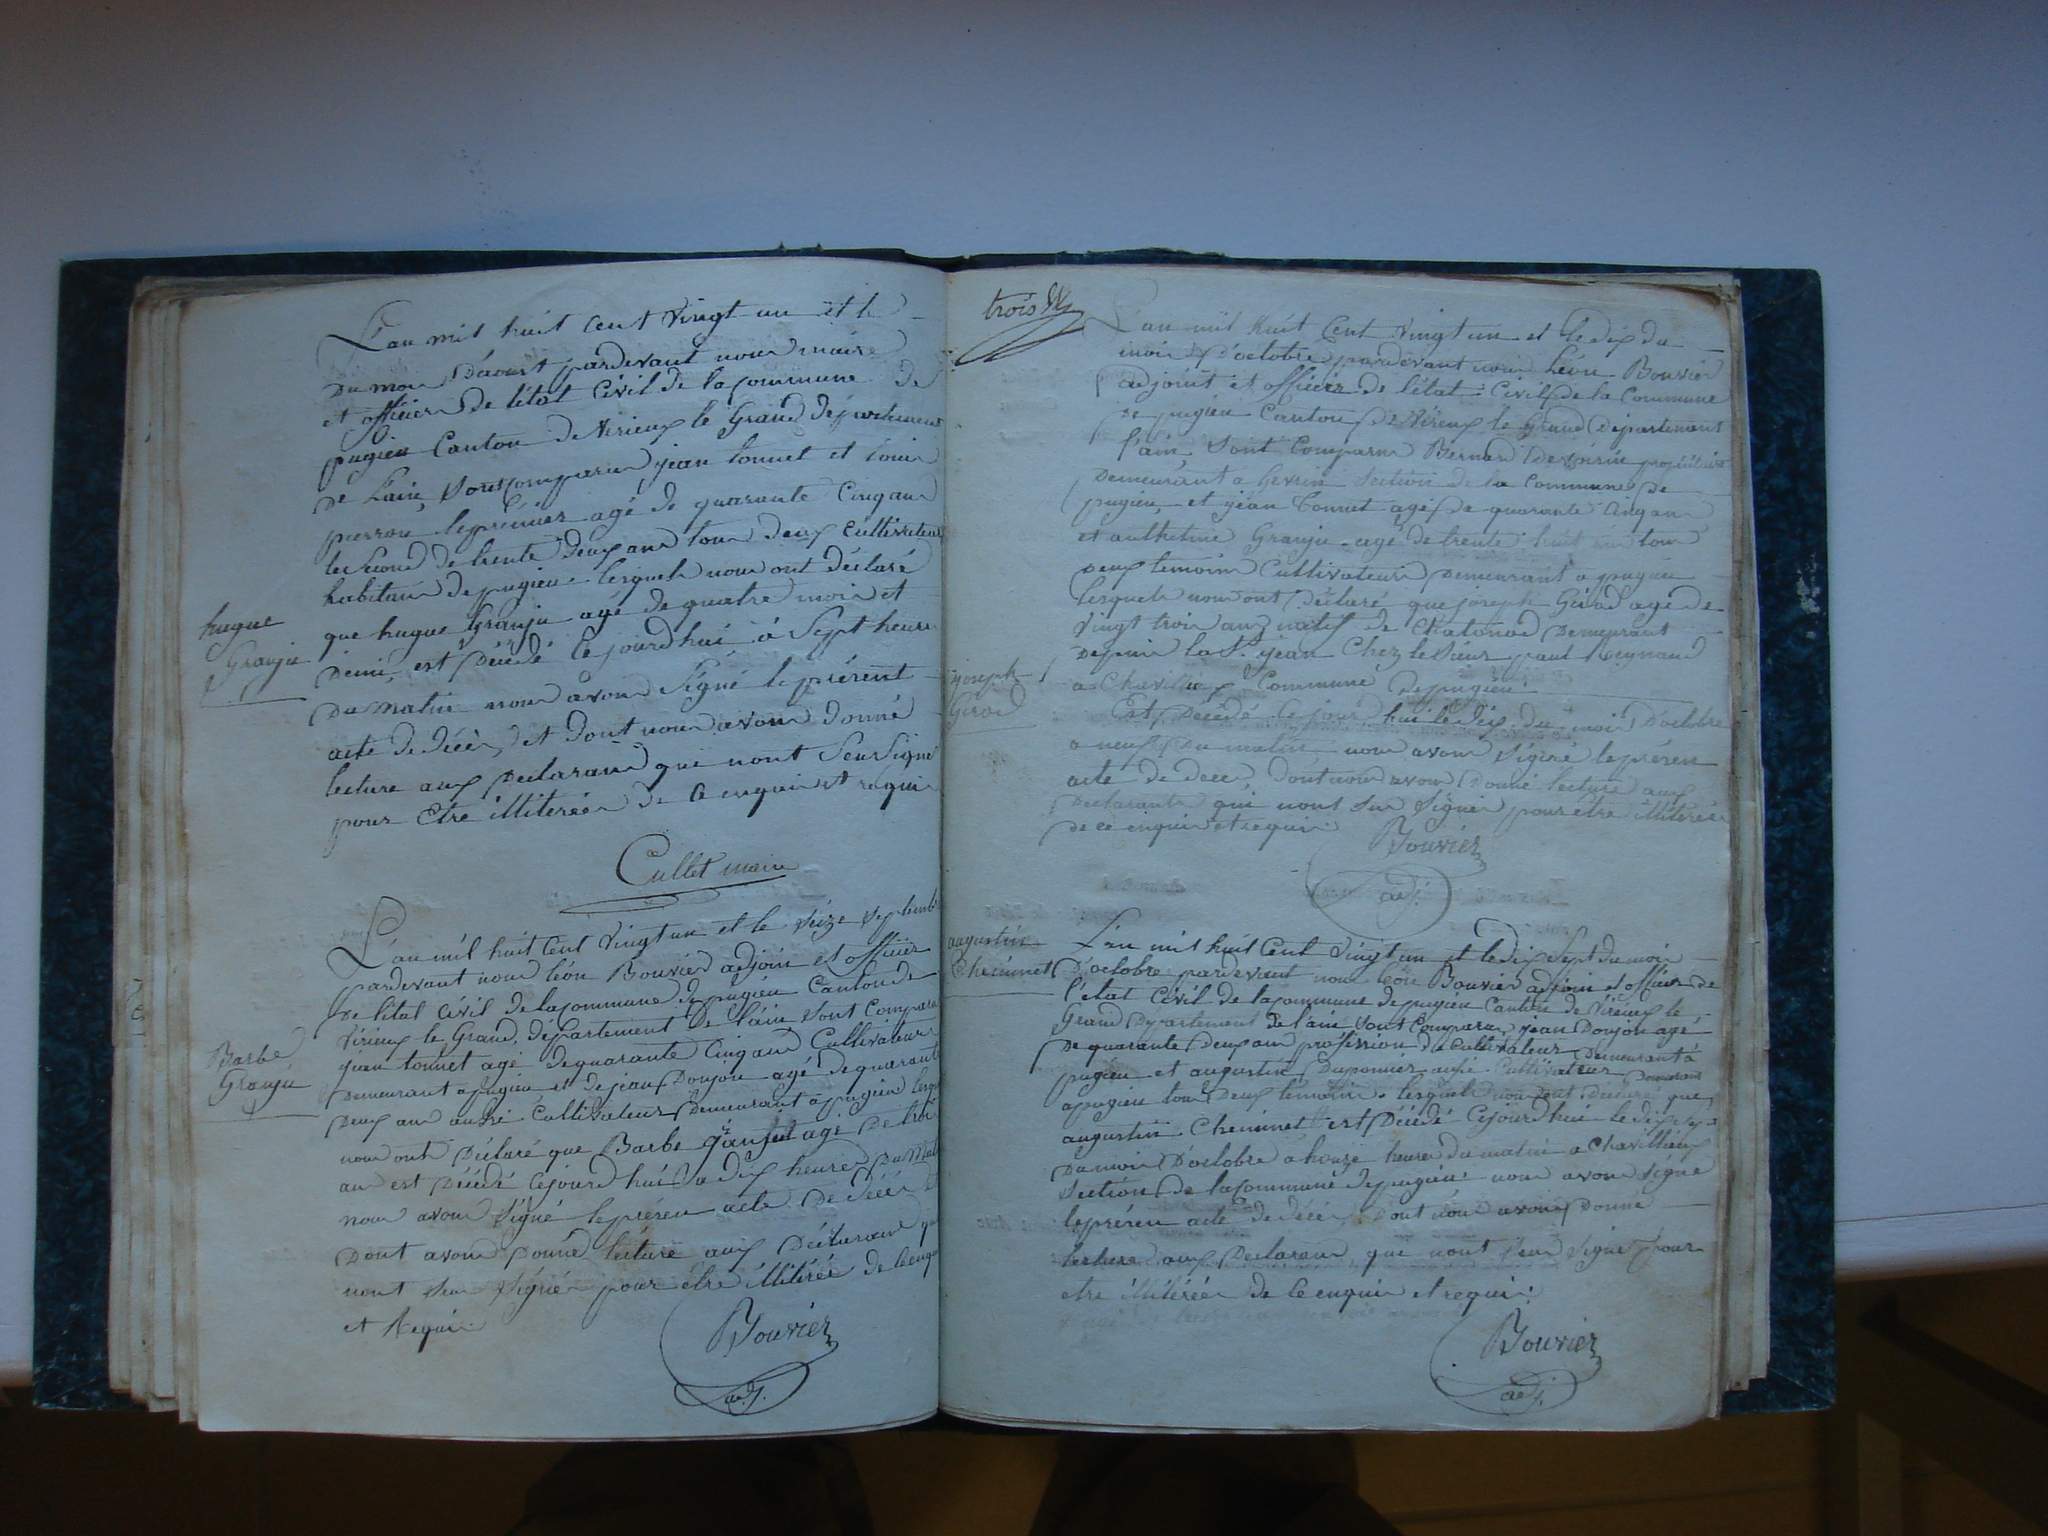 L'an mil huit cent vingt un et le
du moi d'aoust pardevant nous maire
et officier de l'état civil de la commune de
pugieu canton de virieux le Grand département
de Lain, sont comparu jean tonnet et louis
pierron le premier agé de quarante cinq ans
le second de trente deux ans tous deux cultivateurs
habitans de pugieu lesquels nous ont déclaré
hugue
Granju
que hugue Granju agé de quatre mois et
demi, est décédé cejourdhui à sept heures
du matin nous avons signé le présent
acte de décès, et dont nous avons donné
lecture aux declarans qui nont seu signé
pour être illiterés de ce enquis et requis
Cullet maire
L'an mil huit cent vingt un et le seize septembre
pardevant nous léon Bouvier adjoin et officier
de l'état civil de la commune de pugieu canton de
virieux le Grand, département de l'ain sont comparu
Barbe
Granju
jean tonnet agé de quarante cinq ans cultivateur
demeurant a pugieu et de jean Donjon agé de quarante
deux ans aussi cultivateur demeurant a pugieu lesquels
nous ont déclaré que Barbe Granju agé de trois
ans est décédé cejourdhui a dix heures du matin
nous avons signé le présen acte de décès
dont avons donné lecture aux déclarans qui
nont seu signé pour être illitérés de ce enquis
et requis
Bouvier
adj.
trois
L'an mil huit cent vingt un et le dix du
mois d'octobre pardevant nous Léon Bouvier
adjoint et officier de l'état civil de la commune
de pugieu canton de virieux le Grand département
l'ain, sont comparu Bernard propriétaire
demeurant a section de la commune de
pugieu, et jean Tonnet agé de quarante cinq ans
et anthelme Granju agé de trente huit ans tous
deux temoins cultivateurs demeurant a pugieu
lesquels nous ont déclaré que joseph Girod agé de
vingt trois ans natif de Chatonod demeurant
depuis la St. jean chez le sieur paul Reignaud
joseph
Girod
a Chavillieux commune de pugieu.
Est décédé ce jourdhui le dix du mois d'octobre
a neuf du matin nous avons signé le présen
acte de deces dont nous avons donné lecture aux
declarants qui nont seu signer pour être illiterés
de ce enquis et requis
Bouvier
adj.
augustin
Cheminet
L'an mil huit cent vingt un et le dix sept du mois
d'octobre pardevant nous léon Bouvier adjoin et officier de
l'état civil de la commune de pugieu canton de virieux le
Grand département de l'ain sont comparu, jean Donjon agé
de quarante deux ans profession de cultivateur demeurant à
pugieu et augustin Duponnier aussi cultivateur demeurant
a pugieu tous deux temoins. lesquels nous ont declaré que
augustin Cheminet est décédé cejourdhui le dix sept
du mois d'octobre à honze heures du matin a Chavillieux
section de la commune de pugieu nous avons signé
le présen acte de décès, dont nous avons donné
lecture aux declarans qui nont seu signé pour
etre illitérés de ce enquis et requis.
Bouvier
adj.